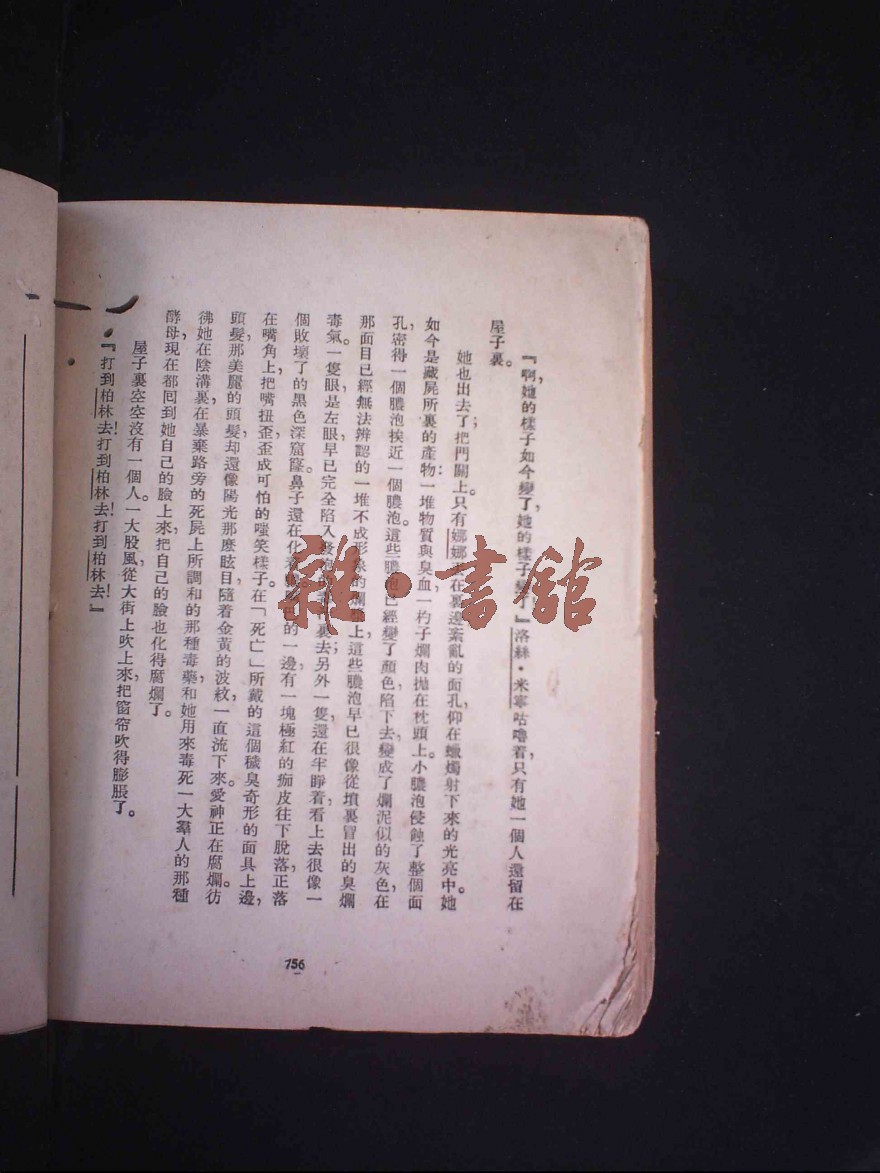 『啊，她的樣子如今變了，她的樣子變了』洛絲·米寧咕嚕着，只有她一個人還留在
屋子裏。
她也出去了；把門關上。只有娜娜 在裏邊，紊亂的面孔，仰在蠟燭射下來的光亮中。她
如今是藏屍所裏的產物：一堆物質與臭血，一杓子爛肉拋在枕頭上。小膿泡侵蝕了整個面
孔，密得一個膿泡挨近一個膿泡。這些膿泡已經變了顏色，陷下去，變成了爛泥似的灰色，在
那面目已經無法辨認的一堆不成形象的 上，這些膿泡早已很像從墳裏冒出的臭爛
毒氣。一隻眼，是左眼，早已完全陷入 裏去；另外一隻，還在半睜着，看上去很像一
個敗壞了的黑色深窟窿。鼻子還在化着 的一邊，有一塊極紅的痂皮往下脫落，正落
在嘴角上，把嘴扭歪，歪成可怕的嗤笑樣子。在「死亡」所戴的這個穢臭奇形的面具上邊，
頭髮，那美麗的頭髮，却還像陽光那麼眩目，隨着金黃的波紋，一直流下來。愛神正在腐爛。彷
彿她在陰溝裏，在暴棄路旁的死屍上所調和的那種毒藥，和她用來毒死一大羣人的那種
酵母，現在都囘到她自己的臉上來，把自己的臉也化得腐爛了。
屋子裏空空沒有一個人。一大股風，從大街上吹上來，把窗帘吹得膨脹了。
『打到柏林去！打到柏林去！打到柏林去！』
156
雜·書館